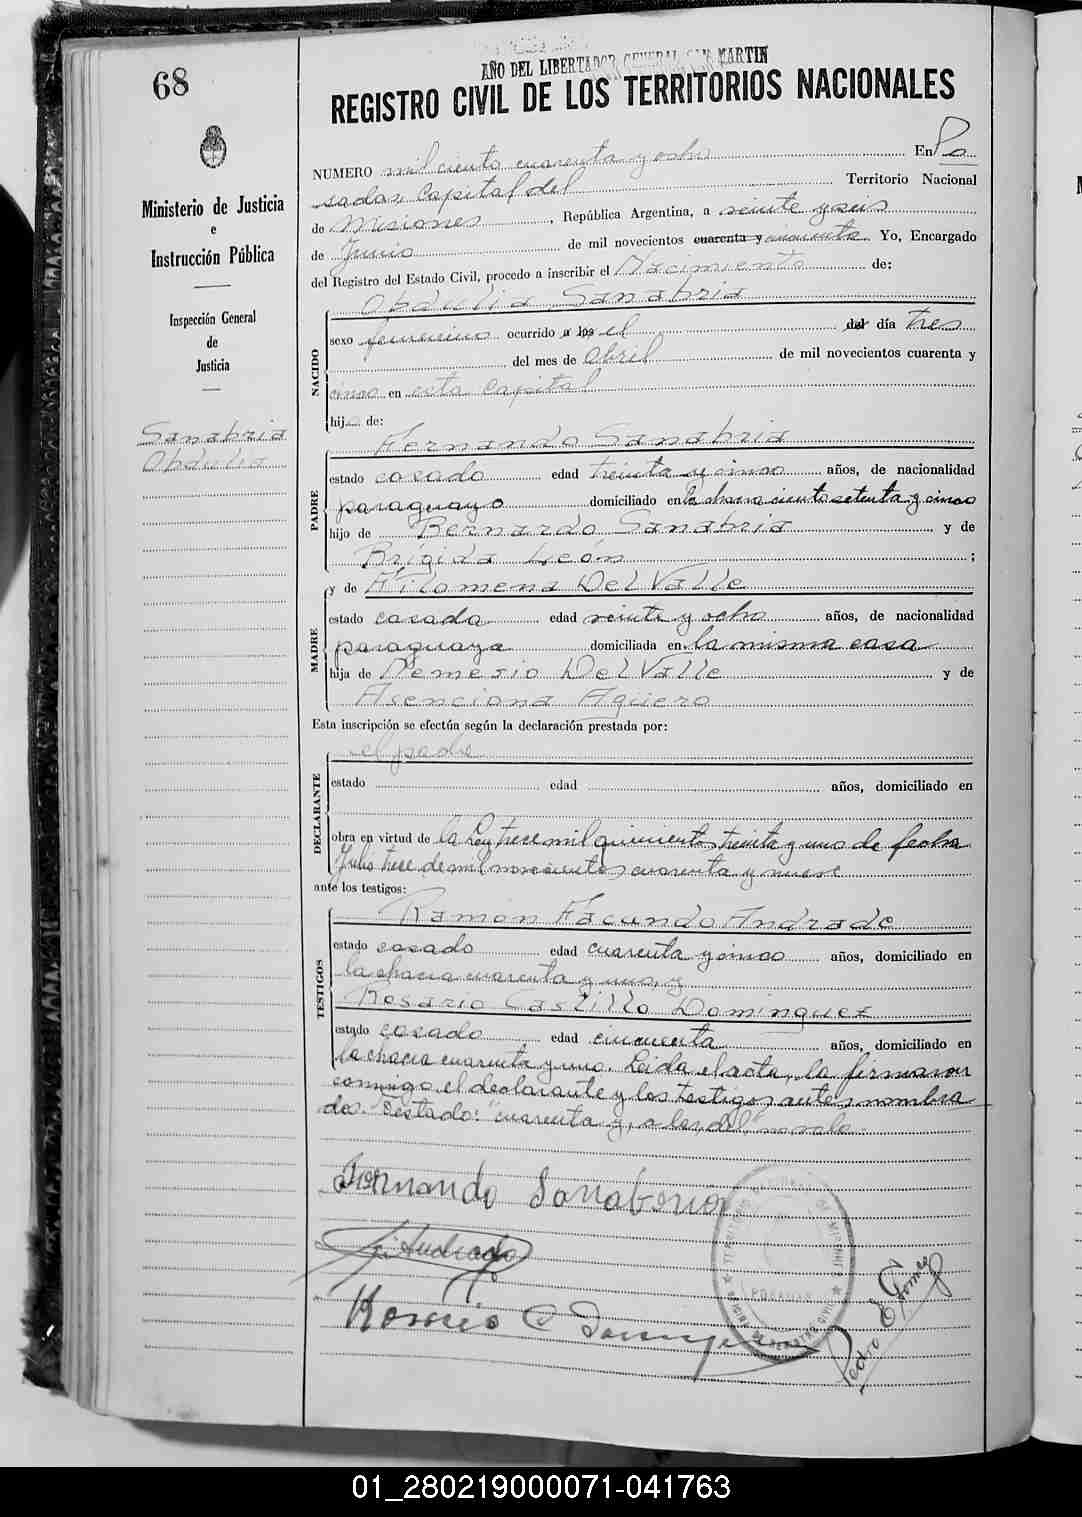 68
AÑO DEL LIBERTADOR GENERAL SAN MARTIN
REGISTRO CIVIL DE LOS TERRITORIOS NACIONALES
Ministerio de Justicia
e
Instrucción Pública
Inspección General
de
Justicia
Sanabria
Obdulia
NUMERO mil ciento cuarenta y ocho En Po
sadas, Capital del Territorio Nacional
de Misiones, República Argentina, a veinte y seis
de Junio de mil novecientos cuarenta y cincuenta. Yo, Encargado
del Registro del Estado Civil, procedo a inscribir el Nacimiento de:
Obdulia Sanabria
NACIDO
sexo femenino ocurrido a las el del día tres
del mes de Abril de mil novecientos cuarenta y
cinco en esta Capital
hija de:
Fernando Sanabria
PADRE
estado casado edad treinta y cinco años, de nacionalidad
paraguayo domiciliado en la chacra ciento setenta y cinco
hijo de Bernardo Sanabria y de
Brigida León ;
y de Filomena Del Valle
MADRE
estado casada edad veinte y ocho años, de nacionalidad
paraguaya domiciliada en la misma casa
hija de Nemesio Del Valle y de
Asenciona Agüero
Esta inscripción se efectúa según la declaración prestada por:
el padre
DECLARANTE
estado edad años, domiciliado en
obra en virtud de la Ley trece mil quinientos treinta y uno de fecha
Julio trece de mil novecientos cuarenta y nueve
ante los testigos:
Ramón Facundo Andrade
TESTIGOS
estado casado edad cuarenta y cinco años, domiciliado en
la chacra cuarenta y uno, y
Rosario Castillo Dominguez
estado casado edad cincuenta años, domiciliado en
la chacra cuarenta y uno. Leida el acta, la firmaron
conmigo el declarante y los testigos antes nombra
dos. Testado: "cuarenta y, a las, del," no vale.
Fernando Sanabria
Andrade
Rosario C Dominguez
POSADAS
Pedro Gomez
01_280219000071-041763